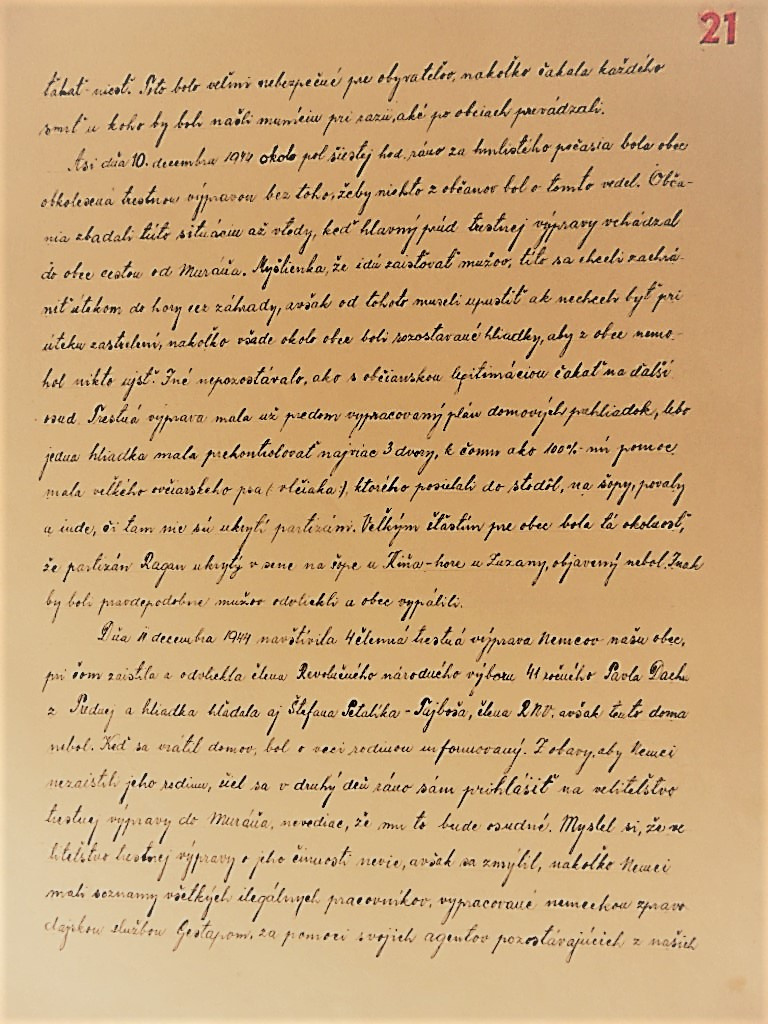 21
ťahať-niesť. Toto bolo veľmi nebezpečné pre obyvateľov, nakoľko čakala každého
smrť u koho by boli našli muníciu pri razii, aké po obciach prevádzali.
Asi dňa 10. decembra 1944 okolo pol šiestej hod. ráno za hmlistého počasia bola obec
obkolesená trestnou výpravou bez toho, žeby niekto z občanov bol o tomto vedel. Obča-
nia zbadali túto situáciu až vtedy, keď hlavný prúd trestnej výpravy vchádzal
do obce cestou od Muráňa. Myšlienka, že idú zaisťovať mužov, títo sa chceli zachrá-
niť útekom do hory cez záhrady, avšak od tohoto museli upustiť ak nechceli byť pri
úteku zastrelení, nakoľko všade okolo obce boli rozostavané hliadky, aby z obce nemo-
hol nikto ujsť. Iné nepozostávalo, ako s občianskou legitimáciou čakať na ďalší
osud. Trestná výprava mala už predom vypracovaný plán domových prehliadok, lebo
jedna hliadka mala prekontrolovať najviac 3 dvory, k čomu ako 100%-nú pomoc
mala veľkého ovčiarskeho psa (:vlčiaka:), ktorého posielali do stodôl, na šopy, povaly
a inde, či tam nie sú ukrytí partizáni. Veľkým šťastím pre obec bola tá okolnosť,
že partizán Ragan ukrytý v sene na šope u Kiňa-hore u Zuzany, objavený nebol. Inak
by boli pravdepodobne mužov odvliekli a obec vypálili.
Dňa 11 decembra 1944 navštívila 4 členná trestná výprava Nemcov našu obec,
pri čom zaistila a odvliekla člena Revolučného národného výboru 41 ročného Pavla Dachu
z Prednej a hliadka hľadala aj Štefana Petalíka-Fijboša, člena RNV. avšak tento doma
nebol. Keď sa vrátil domov, bol o veci rodinou informovaný. Z obavy, aby Nemci
nezaistili jeho rodinu, išiel sa v druhý deň ráno sám prihlásiť na veliteľstvo
trestnej výpravy do Muráňa, nevediac, že mu to bude osudné. Myslel si, že ve
liteľstvo trestnej výpravy o jeho činnosti nevie, avšak sa zmýlil, nakoľko Nemci
mali zoznamy všetkých ilegálnych pracovníkov, vypracované nemeckou zpravo
dajskou službou Gestapom, za pomoci svojich agentov pozostávajúcich z našich